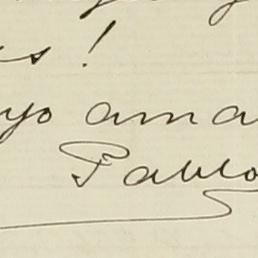 s!
yo ama
Pablo